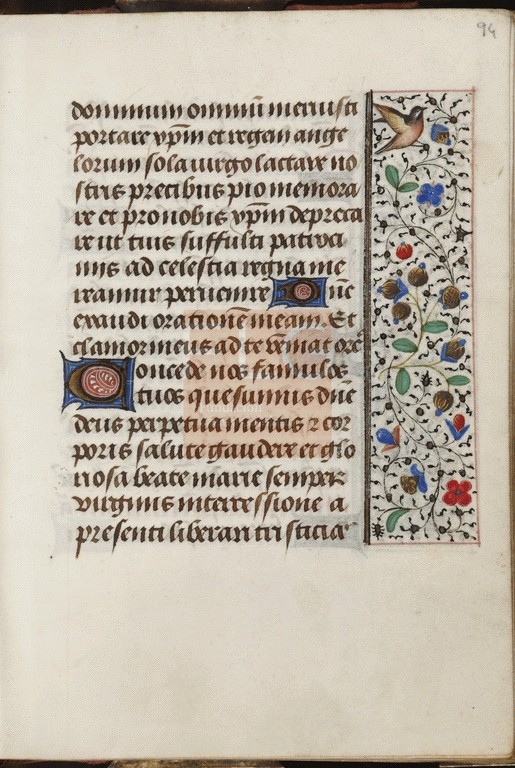 94
dominum omniū meruisti
portare xp̄m et regem ange
lorum sola uirgo lactare no
stris precibus pio memora
re et pro nobis xp̄m depreca
re ut tuis suffulti patroci
niis ad celestia regna me
reamur peruenire Dn̄e
exaudi orationē meam. Et
clamor meus ad te veniat orō
Concede nos famulos
tuos quesumus dn̄e
deus perpetua mentis ⁊ cor
poris salute gaudere et glo
riosa beate marie semper
virginis intercessione a
presenti liberari tristicia